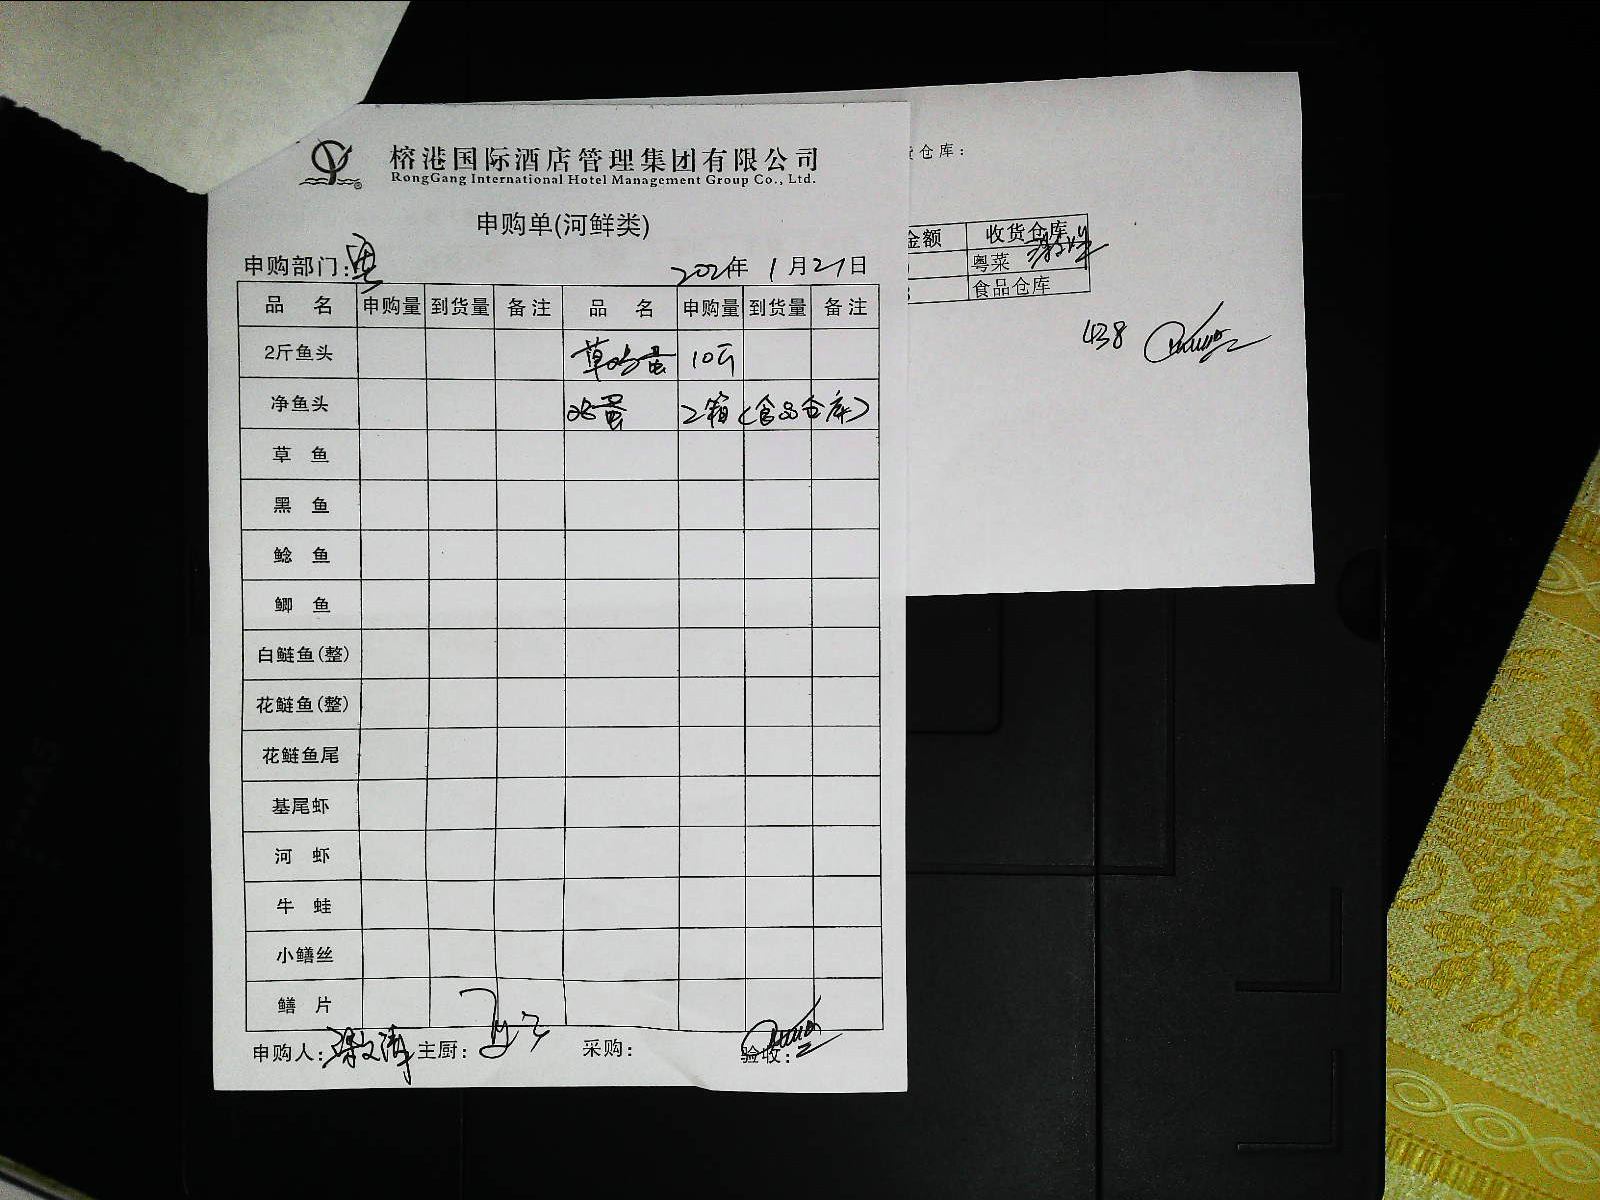 榕港国际酒店管理集团有限公司
RongGang International Hotel Management Group Co., Ltd.
申购单(河鲜类)
申购部门: 2021年 1月21日
品 名 申购量 到货量 备注 品 名 申购量 到货量 备注
2斤鱼头 草鸡蛋 10斤
净鱼头 鸡蛋 2箱(食品仓库)
草 鱼
黑 鱼
鲶 鱼
鲫 鱼
白鲢鱼(整)
花鲢鱼(整)
花鲢鱼尾
基尾虾
河 虾
牛 蛙
小鳝丝
鳝 片
申购人: 主厨: 采购: 验收:
仓库:
金额 收货仓库
粤菜
食品仓库
438